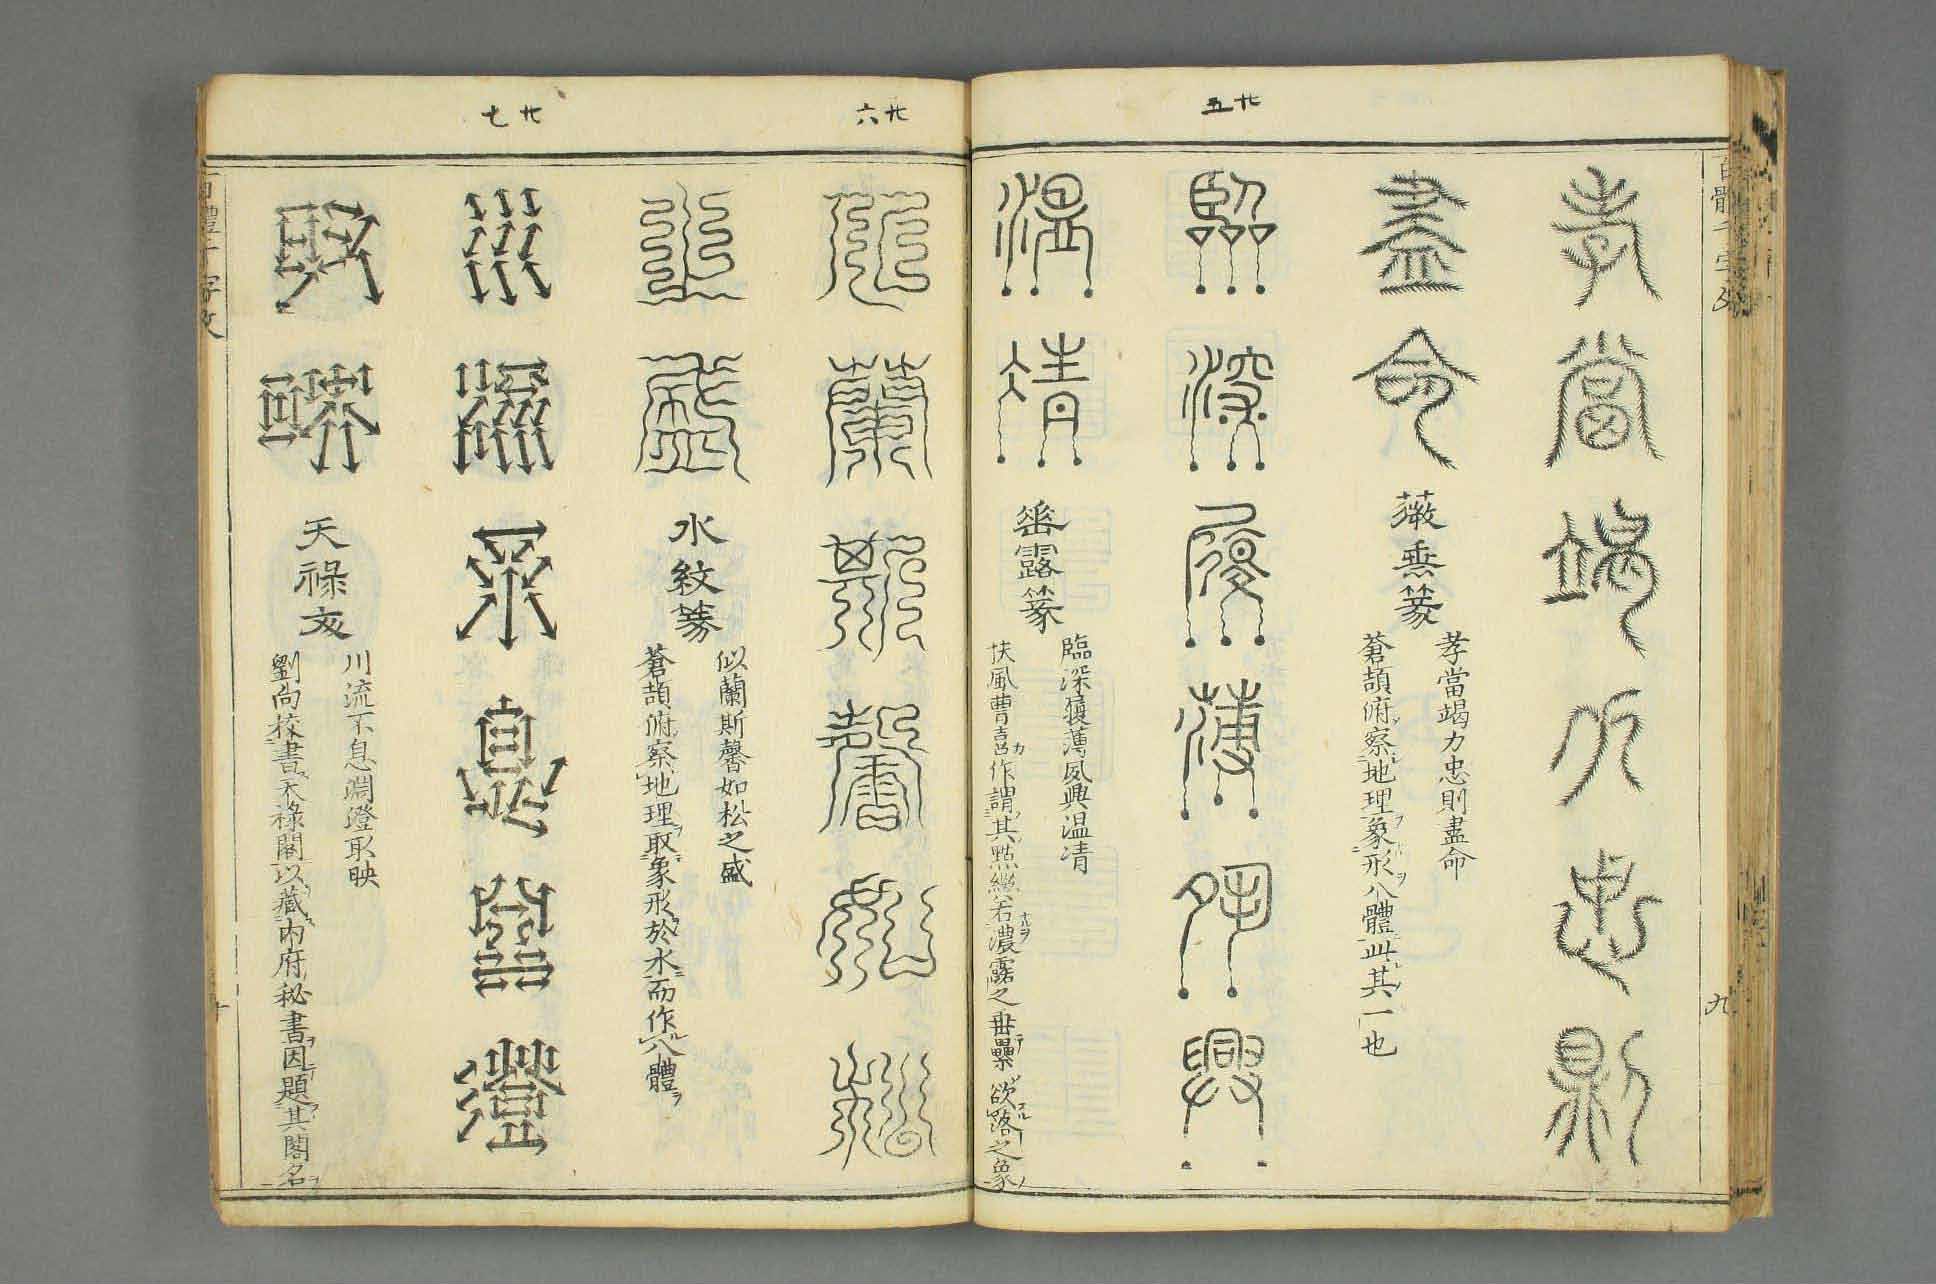 百體千字文
九
孝當竭力忠則
盡命
薇垂篆
孝當竭力忠則盡命
蒼頡俯察地理象形八體此其一也
廿五
臨深履薄夙興
温凊
垂露篆
臨深履薄夙興温凊
扶風曹喜作謂其點綴若濃露之垂纍欲落之象
廿六
似蘭斯馨如松
之盛
水紋篆
似蘭斯馨如松之盛
蒼頡俯察地理取象形於水而作八體
廿七
川流不息淵澄
取映
天祿文
川流不息淵澄取映
劉向校書天祿閣以藏内府秘書因題其閣名
百體千字文
十